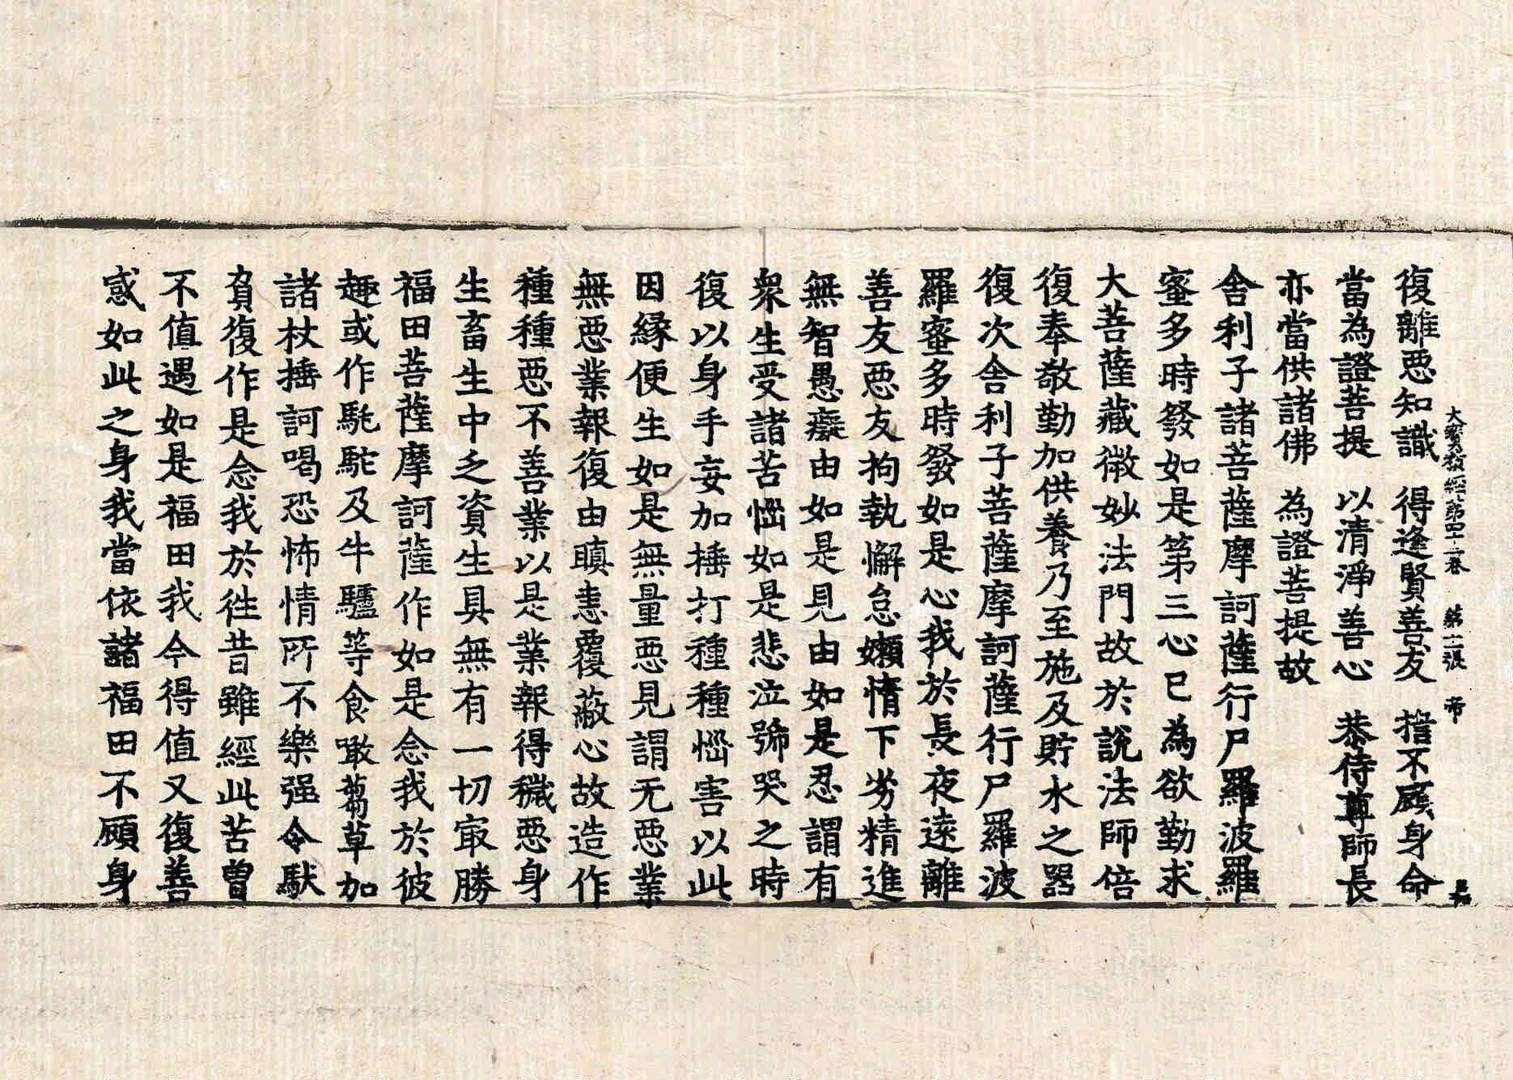 大寳積經第四十二卷 第十二張 帝
復離惡知識 得逢賢善友 擔不顧身命
當為證菩提 以清淨善心 恭侍尊師長
亦當供諸佛 為證菩提故
舍利子諸菩薩摩訶薩行尸羅波羅
蜜多時發如是第三心已為欲勤求
大菩薩藏微妙法門故於說法師倍
復奉敬勤加供養乃至施及貯水之器
復次舍利子菩薩摩訶薩行尸羅波
羅蜜多時發如是心我於長夜遠離
善友惡友拘執懈怠嬾惰下劣精進
無智愚癡由如是見由如是忍謂有
衆生受諸苦惱如是悲泣號哭之時
復以身手妄加捶打種種惱害以此
因緣便生如是無量惡見謂无惡業
無惡業報復由瞋恚覆蔽心故造作
種種惡不善業以是業報得穢惡身
生畜生中乏資生具無有一切㝡勝
福田菩薩摩訶薩作如是念我於彼
趣或作馲駝及牛驢等食噉蒭草加
諸杖捶訶喝恐怖情所不樂强令馱
負復作是念我於徃昔雖經此苦曾
不值遇如是福田我今得值又復善
惑如此之身我當依諸福田不顧身